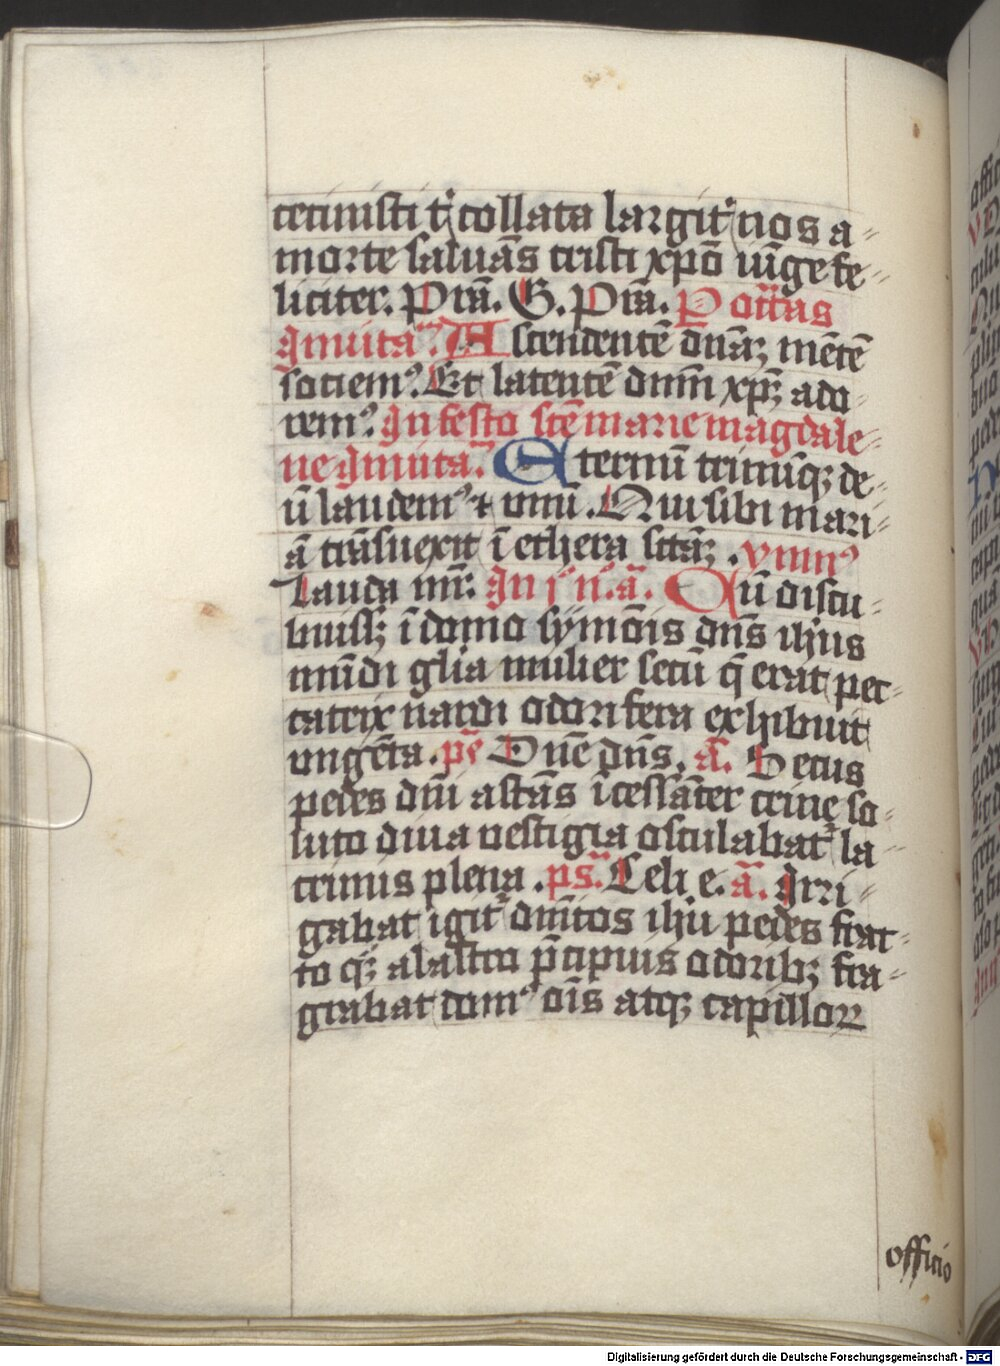 cecinisti t᷑ collata largit᷑ nos a⸗
morte saluās tristi xpō iūge fe⸗
liciter. P̄ rā. G. P rā. P ot̄tas
Inuita. Ascendentē dn̄āꝫ mētē
sociemꝰ. Et latentē dn̄m xp̄ꝫ ado
remꝰ. In festo sc̄e marie magdale⸗
ne Inuita. Eternū trinūqꝫ de⸗
ū laudemꝰ ⁊ vnū. Qui sibi mari⸗
ā trāsuexit ī ethera sc̄āꝫ. ymnꝰ
Lauda mr̄. In j n̄. ā. Cū discu⸗
buissꝫ ī domo symōis dn̄s ihus
mūdi gl̄ia mulier secū q̄ erat pec⸗
catrix nardi odorifera exhibuit
vngēta. ps̄ Dn̄e dn̄s. ā. Secus
pedes dn̄i astās īcessāter crine so⸗
luto diua vestigia osculabat᷑ la⸗
crimis plena. ps̄. Celi e. ā. Irri⸗
gabat igit᷑ dn̄icos ihu pedes frac⸗
to qꝫ alastro p̄cipuis odoribꝫ fra⸗
grabat domꝰ oīs atqꝫ capilloꝝ
officio
Digitalisierung gefördert durch die Deutsche Forschungsgemeinschaft - DFG